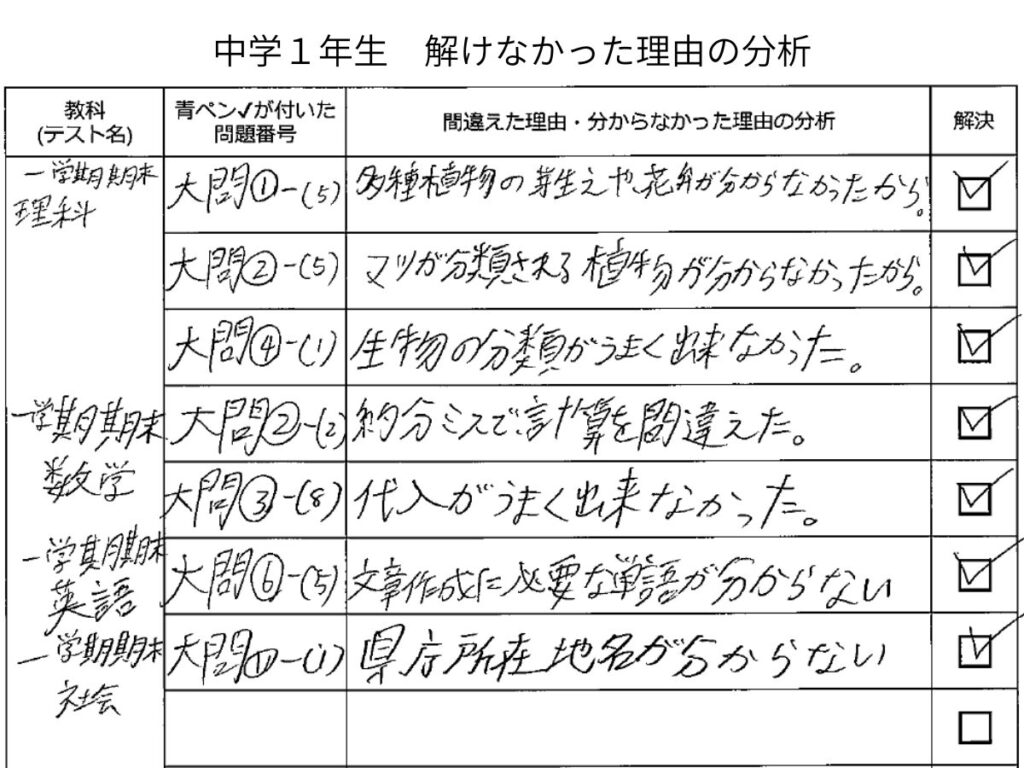 中学１年生　解けなかった理由の分析
教科
(テスト名)
青ペン✓が付いた
問題番号
間違えた理由・分からなかった理由の分析
解決
一学期期末
理科
大問①-(5)
多種植物の芽生えや花弁が分からなかったから。
大問②-(5)
マツが分類される植物が分からなかったから。
大問④-(1)
生物の分類がうまく出来なかった。
一学期期末
数学
大問②-(2)
約分ミスで計算を間違えた。
大問③-(8)
代入がうまく出来なかった。
一学期期末
英語
大問⑥-(5)
文章作成に必要な単語が分からない
一学期期末
社会
大問⑪-(1)
県庁所在地名が分からない